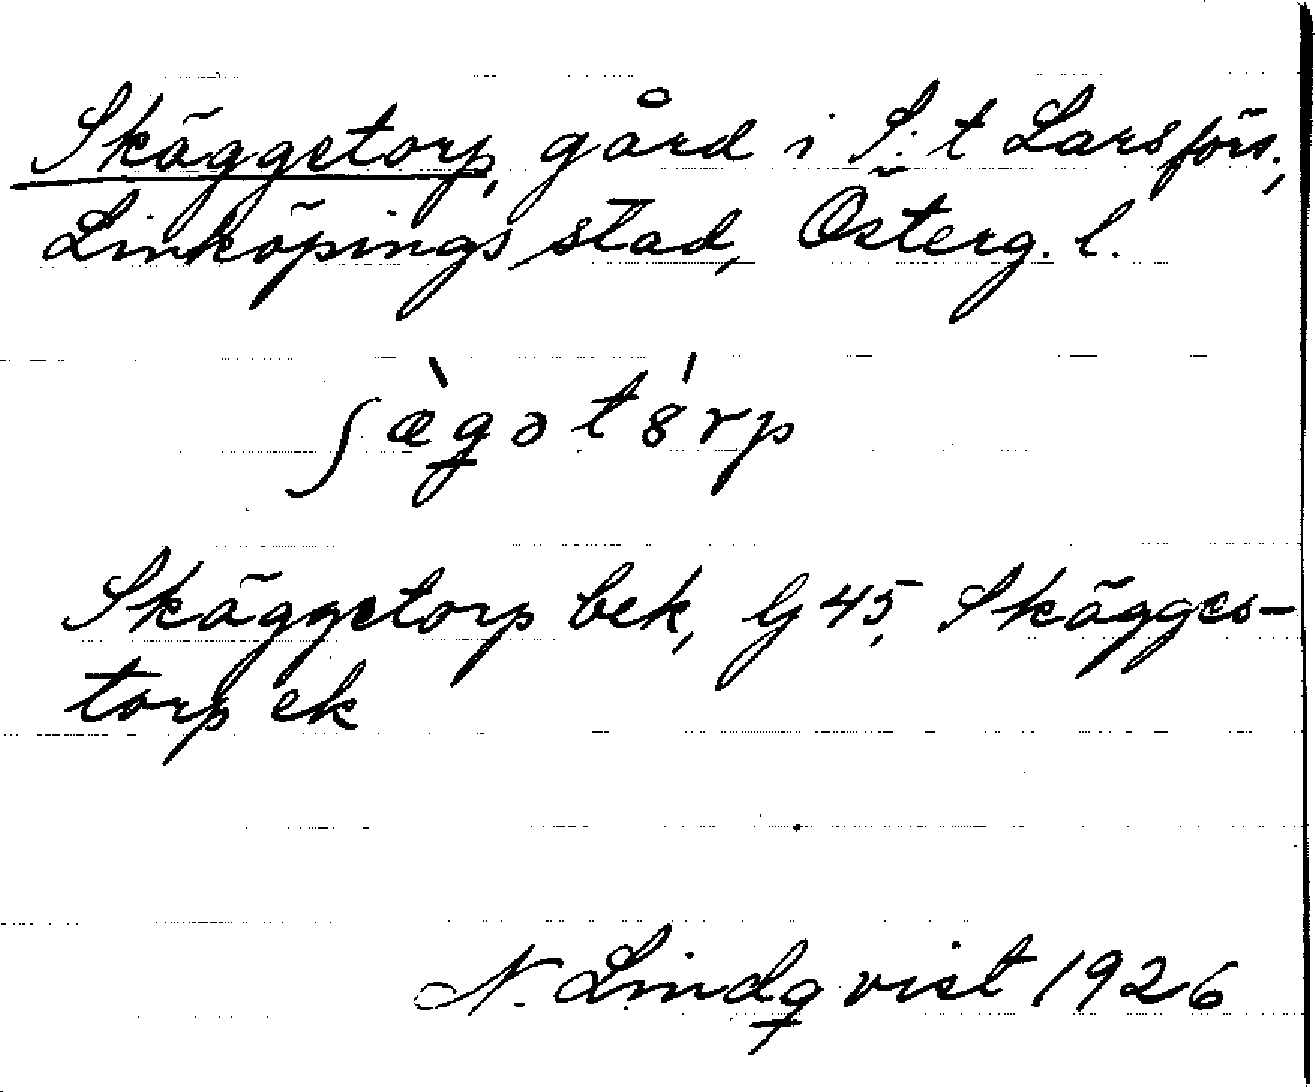 Skäggetorp, gård i S:t Lars förs.,
Linköpings stad, Österg. l.
ʃæ̀gət8́rp
Skäggetorp bek, G 45, Skägges-
torp ek
N. Lindqvist 1926